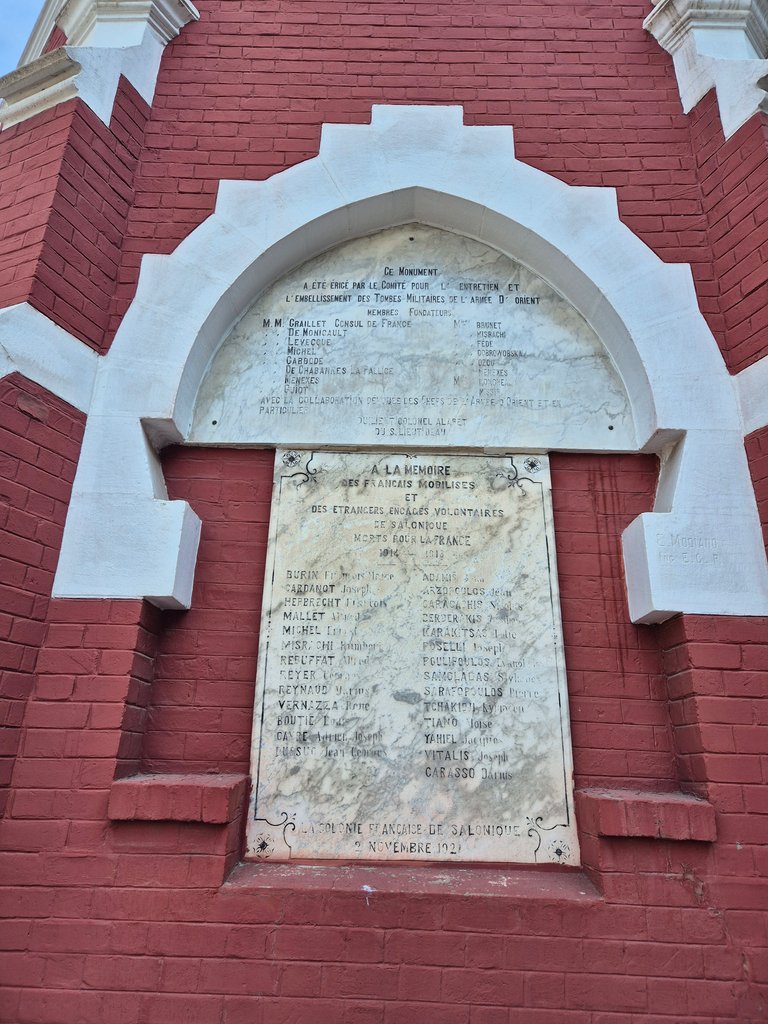 Ce Monument
a été érigé par le Comité pour l'entretien et
l'embellissement des Tombes Militaires de l'armée d'Orient
membres fondateurs
M.M. Graillet Consul de France
De Monicault
Levecque
Michel
Gaboude
De Chabannes La Palice
Nenexes
Guiot
Brunet
Misrachi
Fede
Dobrowobska
Ozou
Nenexes
avec la collaboration de tous les Chefs de l'Armée d'Orient et en
particulier
du Lieut Colonel Alapet
du S. Lieut
A LA MEMOIRE
DES FRANCAIS MOBILISES
ET
DES ETRANGERS ENGAGES VOLONTAIRES
DE SALONIQUE
MORTS POUR LA FRANCE
1914 — 1918
BURIN François
CARDANOT Joseph
HERBRECHT François
MALLET
MICHEL Ernest
MISRACHI
REBUFFAT Alfred
REYER
REYNAUD Marius
VERNAZZA René
BOUTIE
CAYRE Adrien Joseph
DUSSUC Jean Georges
ADAMIS Jean
ARZOPOULOS Jean
CARACACHIS
KARAKITSAS
POSELLI Joseph
POULIPOULOS
SAMOLADAS
SARAFOPOULOS Pierre
TIANO Moise
YAHIEL Jacques
VITALIS Joseph
CARASSO Darius
LA COLONIE FRANCAISE DE SALONIQUE
2 NOVEMBRE 1921
E. Modiano
Ing. E.C.P.